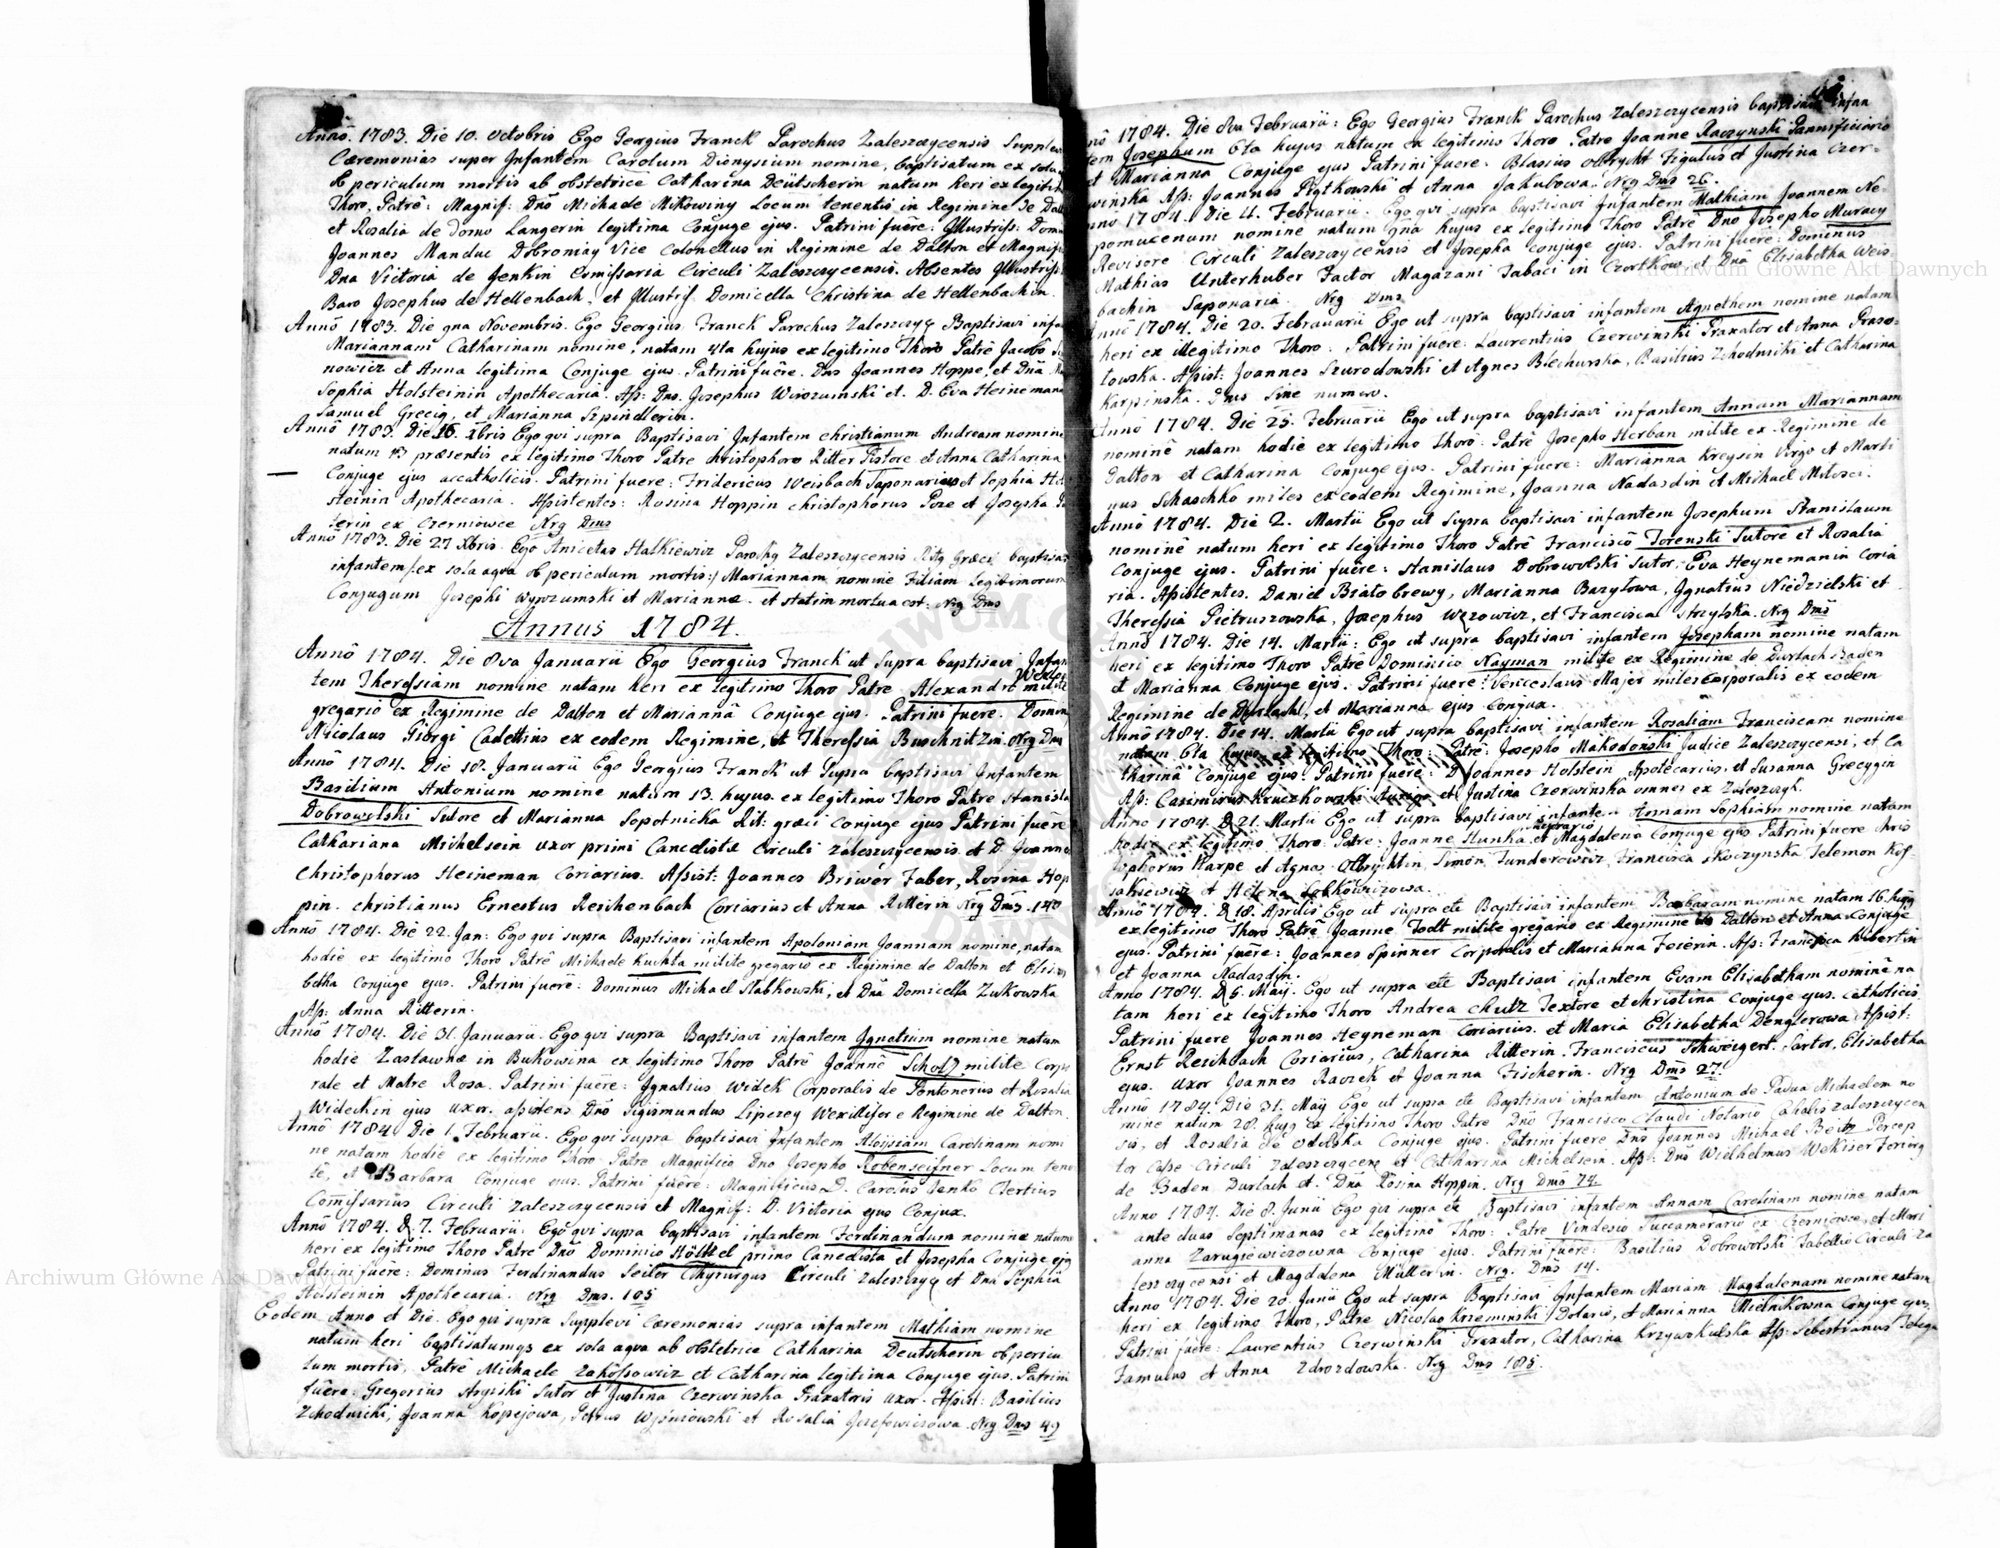 Anno. 1783. Die 10. octobris Ego Georgius Franck Parochus Zaleszczycensis Supplevi
Cæremonias super Infantem Carolum Dionysium nomine, baptisatum ex sola
ob periculum mortis ab obstetrice Catharina Deütscherin natum heri ex legitimo
Thoro, Patrê: Magnif: Dnô Michaele Mikowiny Locum tenentis in Regimine de
et Rosalia de domo Langerin legitima Conjuge ejus. Patrini fuêre: Jllustriss:
Joannes Manduc Dobroniay Vice Colonellus in Regimine de Dalton et
Dna Victoria de Jenkin Comissaria Circuli Zaleszczycensis. Absentes
Baro Josephus de Hellenbach, et Jllustrif. Domicella Christina de Hellenbachin.
Annô 1783. Die Novembris. Ego Georgius Franck Parochus Baptisavi
Mariannam Catharinam nomine, natam 4ta hujus ex legitimo Thoro Patrê Jacobô
nowicz et Anna legitima Conjuge ejus. Patrini fuêre. Dns Joannes Hoppe, et Dnã
Sophia Holsteinin Apothecaria. Ass: Dns. Josephus et. D. Eva Heineman
Samuel et Marianna Szpindlerin.
Annô 1783. Die 26. Xbris Ego qui supra Baptisavi Infantem Christianum Andream nomine
natum præsentis ex legitimo Thoro Patre Christophoro Ritter Pistore et Anna Catharina
Conjuge ejus accatholicis. Patrini fuere: Fridericus Weisbach Saponarius et Sophia Hol
steinin Apothecaria. Assistentes: Rosina Hoppin Christophorus et Josepha
terin ex Czerniowce Nrg Dms
Anno 1783. Die 27 Xbris. Ego Anicetus Halkiewicz Zaleszczycensis Græci baptisavi
infantem /: ex sola aqva ob periculum mortis :/ Mariannam nomine Filiam Legitimorum
Conjugum Josephi et Mariannæ. et statim mortua est. Nrg Dms
Annus 1784.
Annô 1784. Die 8va Januarii Ego Georgius Franck ut supra baptisavi Infan
tem Theressiam nomine natam heri ex legitimo Thoro Patre Alexandro milite
gregario ex Regimine de Dalton et Mariannâ Conjuge ejus. Patrini fuere. Dominus
Nicolaus Giorgi Cadettus ex eodem Regimine, et Theressia Nrg Dms
Annô 1784. Die 18. Januarii Ego Georgius Franck ut Supra baptisavi Infantem
Basilium Antonium nomine natum 13. hujus. ex legitimo Thoro Patre Stanislao
Dobrowolski Sutore et Marianna Sopotnicka Rit: græci Conjuge ejus Patrini fuêre
Cathariana Michelsein uxor primi Cancelistæ Circuli Zaleszczycensis et D. Joannes
Christophorus Heineman Coriarius. Assist: Joannes Briwer Faber, Rosina Hop
pin. Christianus Ernestus Reichenbach Coriarius et Anna Ritterin Nrg Dms. 140
Anno 1784. Die 22. Jan: Ego qui supra Baptisavi infantem Apoloniam Joannam nomine, natam
hodie ex legitimo Thoro Patrê Michaele Kuchta milite gregario ex Regimine de Dalton et Elisa
betha Conjuge ejus. Patrini fuêrê: Dominus Michael Slabkowski, et Dña Domicella Zukowska
Ass: Anna Ritterin.
Annô 1784. Die 31. Januarii. Ego qui supra Baptisavi infantem Ignatium nomine natum
hodie Zastawnæ in Bukowina ex legitimo Thoro Patrê Joannê milite Corpo
rale et Matre Rosa. Patrini fuêre: Ignatius Widek Corporalis de Pontonerius et Rosalia
Wideckin ejus uxor. assistens Dnô Sigismundus Wexillifer e Regimine de Dalton.
Annô 1784. Die 1. Februarii. Ego qui supra baptisavi Infantem Aloysiam Carolinam nomi
ne natam hodie ex legitimo Thoro Patre Magnifico Dno Josepho Locum tenen
tê, et Barbara Conjuge ejus. Patrini fuêre: Magnificus D. Carolus Jenko Tertius
Comissarius Circuli Zaleszczycensis et Magnif: D. Victoria ejus Conjux.
Annô 1784. D. 7. Februarii. Ego qui supra baptisavi infantem Ferdinandum nomine natum
heri ex legitimo Thoro Patre Dnô Dominico primo Cancelista et Josepha Conjuge ejus
Patrini fuêre: Dominus Ferdinandus Seiler Chyrurgus Circuli et Dna Sophia
Holsteinin Apothecaria. Nrg Dms. 105
Eodem Anno et Die. Ego qui supra Supplevi Ceremonias supra infantem Mathiam nomine
natum heri baptisatumqs ex sola aqva ab obstetrice Catharina Deutscherin ob pericu
lum mortis, Patrê Michaele et Catharina legitima Conjuge ejus. Patrini
fuêre: Gregorius Sutor et Justina Czerwinska Praxatoris uxor. Assist: Basilius
Zchodnicki, Joanna Kopejowa, Petrus et Rosalia Josefowiczowa. Nrg Dms 49
nnô 1784. Die 8va Februarii: Ego Georgius Franck Parochus Zaleszczycensis baptisavi infan
tem Josephum 6ta hujus natum ex legitimo Thoro Patre Joanne Raczynski Pannificiario
et Marianna Conjuge ejus Patrini fuere: Blasius Olbrycht Figulus et Justina Czer-
winska Ass: Joannes Piątkowski et Anna Jakubowa. Nrg Dms 26.
nno 1784. Die 11. Februarii. Ego qvi supra baptisavi Infantem Mathiam Joannem Ne-
pomucenum nomine natum hujus ex legitimo Thoro Patrê Dno Josepho
Revisore Circuli Zaleszczycensis et Josepha conjuge ejus. Patrini fuerê: Dominus
Mathias Unterhuber Factor Magazani Tabaci in Czortkow et Dna Elisabetha Weis-
bachin Saponaria. Nrg Dms
Annô 1784. Die 20. Februarii Ego ut supra baptisavi infantem Agnethem nomine natam
heri ex illegitimo Thoro. Patrini fuêre. Laurentius Czerwinski Praxator et Anna
towska. Assist: Joannes Szurodowski et Agnes Blechurska, Basilius Zchodnicki et Catharina
Karpinska. Dms sine numero.
Anno 1784. Die 25. Februarii Ego ut supra baptisavi infantem Annam Mariannam
nominê natam hodie ex legitimo Thoro. Patrê Josepho Herban milite ex Regimine de
Dalton et Catharina Conjuge ejus. Patrini fuere: Marianna Kreysin Virgo et Marti
nus Schaschko miles ex eodem Regimine, Joanna Nadasdin et Michael
Anno 1784. Die 2. Martii Ego ut Supra baptisavi infantem Josephum Stanislaum
nominê natum heri ex legitimo Thoro Patrê Franciscô Torenski Sutorê et Rosalia
Conjuge ejus. Patrini fuêre: Stanislaus Dobrowolski Sutor, Eva Heynemanin Coria
ria. Assistentes. Daniel Białobrewy, Marianna Bazylowa, Ignatius Niedzielski et
Theressia Pietruszowska, Josephus et Francisca Nrg Dms
Annô 1784. Die 14. Martii: Ego ut supra baptisavi infantem Josepham nomine natam
heri ex legitimo Thoro Patrê Dominico Nayman milite ex Regimine de Durlach Baden
et Marianna Conjuge ejus. Patrini fuere: Venceslaus Major miles Corporalis ex eodem
Regimine de Durlach, et Marianna ejus Conjux.
Anno 1784. Die 14. Martii Ego ut supra baptisavi infantem Rosaliam Franciscam nomine
natam 6ta hujus ex legitimo Thoro: Patrê: Josepho Mahodonski Judice Zaleszczycensi, et Ca
tharina Conjuge ejus. Patrini fuere: D Joannes Holstein Apotecarius, et Susanna Grecygin
Ass: Casimirus Kruczkowski et Justina Czerwinska omnes ex Zaleszczyk.
Anno 1784. D. 21. Martii Ego ut supra baptisavi infantem Annam Sophiam nomine natam
hodie ex legitimo Thoro. Patre: Joanne Hunka et Magdalena Conjuge ejus Patrini fuere Chris
tophorus Karpe et Agnes Olbrychtin Simon Funderewicz, Francisca Skoczynska Telemon Kos-
sakiewicz et Helena Lobkowiczowa.
Annô 1784. D 18. Aprilis Ego ut supra etê Baptisavi infantem Barbaram nomine natam 16.
ex legitimo Thoro Patrê Joanne Todt milite gregario ex Regimine de Dalton et Anna Conjuge
ejus. Patrini fuêre: Joannes Spinner Corporalis et Marianna Ass: Francisca Hubertin
et Joanna Nadasdyn.
Anno 1784. D. 6. Maÿ. Ego ut supra etê Baptisavi infantem Evam Elisabetham nominê na
tam heri ex legitimo Thoro Andrea Textore et Christina Conjuge ejus. Catholicis.
Patrini fuere Joannes Heyneman Coriarius. et Maria Elisabetha Denglerowa. Assist:
Ernst Reichbach Coriarius, Catharina Ritterin. Franciscus Schweigert. Sartor, Elisabetha
ejus. uxor Joannes Raczek et Joanna Fischerin. Nrg Dms 27.
Annô 1784. Die 31. Maÿ Ego ut supra etê Baptisavi infantem Antonium de Padua Michaelem no
mine natum 28. ex legitimo Thoro Patre Dnô Francisco Claudi Notario Zaleszczycen
sis, et Rosalia de Odolska Conjuge ejus. Patrini fuere Dns Joannes Michael Percep
tor Casse Circuli et Catharina Michelsein. Ass: Dns Wilhelmus
de Baden Durlach et Dña Rosina Hoppin. Nrg Dms 74.
Anno 1784. Die 8. Junii Ego qui supra etê Baptisavi infantem Annam Carolinam nomine natam
ante duas Septimanas ex legitimô Thoro: Patre Succamerario ex Czerniowce, et Mari
anna Zarugiewiczowna Conjuge ejus. Patrini fuêre: Basilius Dobrowolski Tabellio Circuli Za
leszczycensi et Magdalena Müllerin. Nrg. Dms 14.
Anno 1784. Die 20. Junii Ego ut supra Baptisavi Infantem Mariam Magdalenam nomine natam
heri ex legitimo Thoro, Patre Nicolao Krzeminski Dolario, et Marianna Mielnikowna Conjuge ejus
Patrini fuere: Laurentius Czerwinski Praxator, Catharina Ass: Sebestianus
Famulus et Anna Zdrozdowska. Nrg Dms 185.
Archiwum Główne Akt Dawnych
Archiwum Główne Akt Dawnych